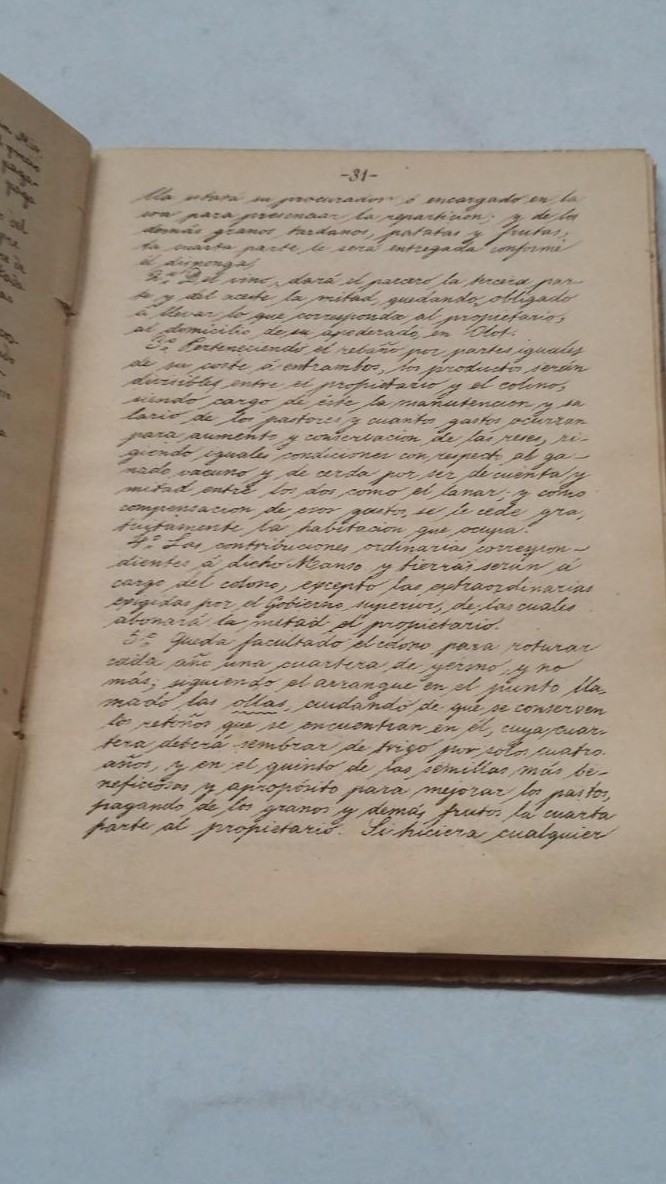 -31-
lla estará su procurador ó encargado en la
era para presenciar la repartición; y de los
demás granos tardanos, patatas y frutas;
la cuarta parte le será entregada conforme
él disponga.
2.ª Del vino, dará el parcero la tercera par-
te y del aceite la mitad, quedando obligado
á llevar lo que corresponda al propietario,
al domicilio de su apoderado en Olot.
3.ª Perteneciendo el rebaño por partes iguales
de su coste á entrambos, los productos serán
divisibles entre el propietario y el colono,
siendo cargo de éste la manutención y sa
lario de los pastores y cuantos gastos ocurran
para aumento y conservación de las reses, ri-
giendo iguales condiciones con respecto al ga-
nado vacuno y de cerda por ser de cuenta y
mitad entre los dos como el lanar; y como
compensación de esos gastos, se le cede gra,
tuitamente la habitación que ocupa.
4.ª Las contribuciones ordinarias correspon-
dientes á dicho Manso y tierras serán á
cargo del colono, excepto las extraordinarias
exigidas por el Gobierno superior, de las cuales
abonará la mitad el propietario.
5.ª Queda facultado el colono para roturar
cada año una cuartera de yermo, y no
más; siguiendo el arranque en el punto lla-
mado las ollas, cuidando de que se conserven
los retoños que se encuentran en él, cuya cuar-
tera deberá sembrar de trigo por solos cuatro
años, y en el quinto de las semillas más be-
neficiosas y apropósito para mejorar los pastos,
pagando de los granos y demás frutos la cuarta
parte al propietario. Si hiciera cualquier